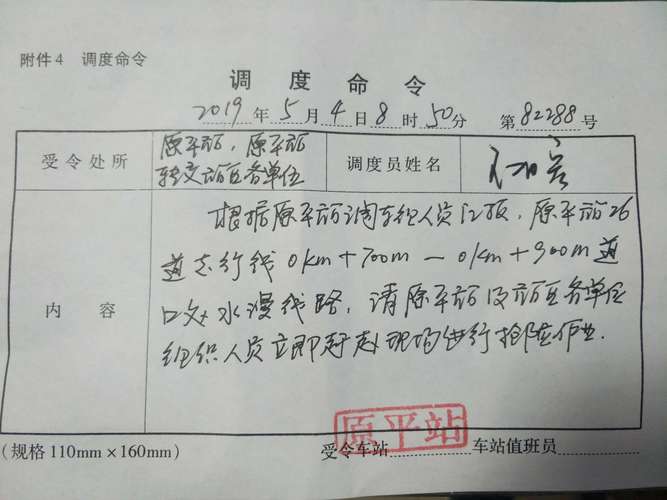 附件4 调度命令
调度命令
2019年5月4日8时50分 第82288号
受令处所
原平站,原平站
转交站区各单位
调度员姓名
内容
根据原平站调车组人员汇报,原平站26
道走行线0km+700m—0km+900m道
口处水漫线路,请原平站及站区各单位
组织人员立即赶赴现场进行抢险作业.
原平站
(规格110mm×160mm)
受令车站 车站值班员